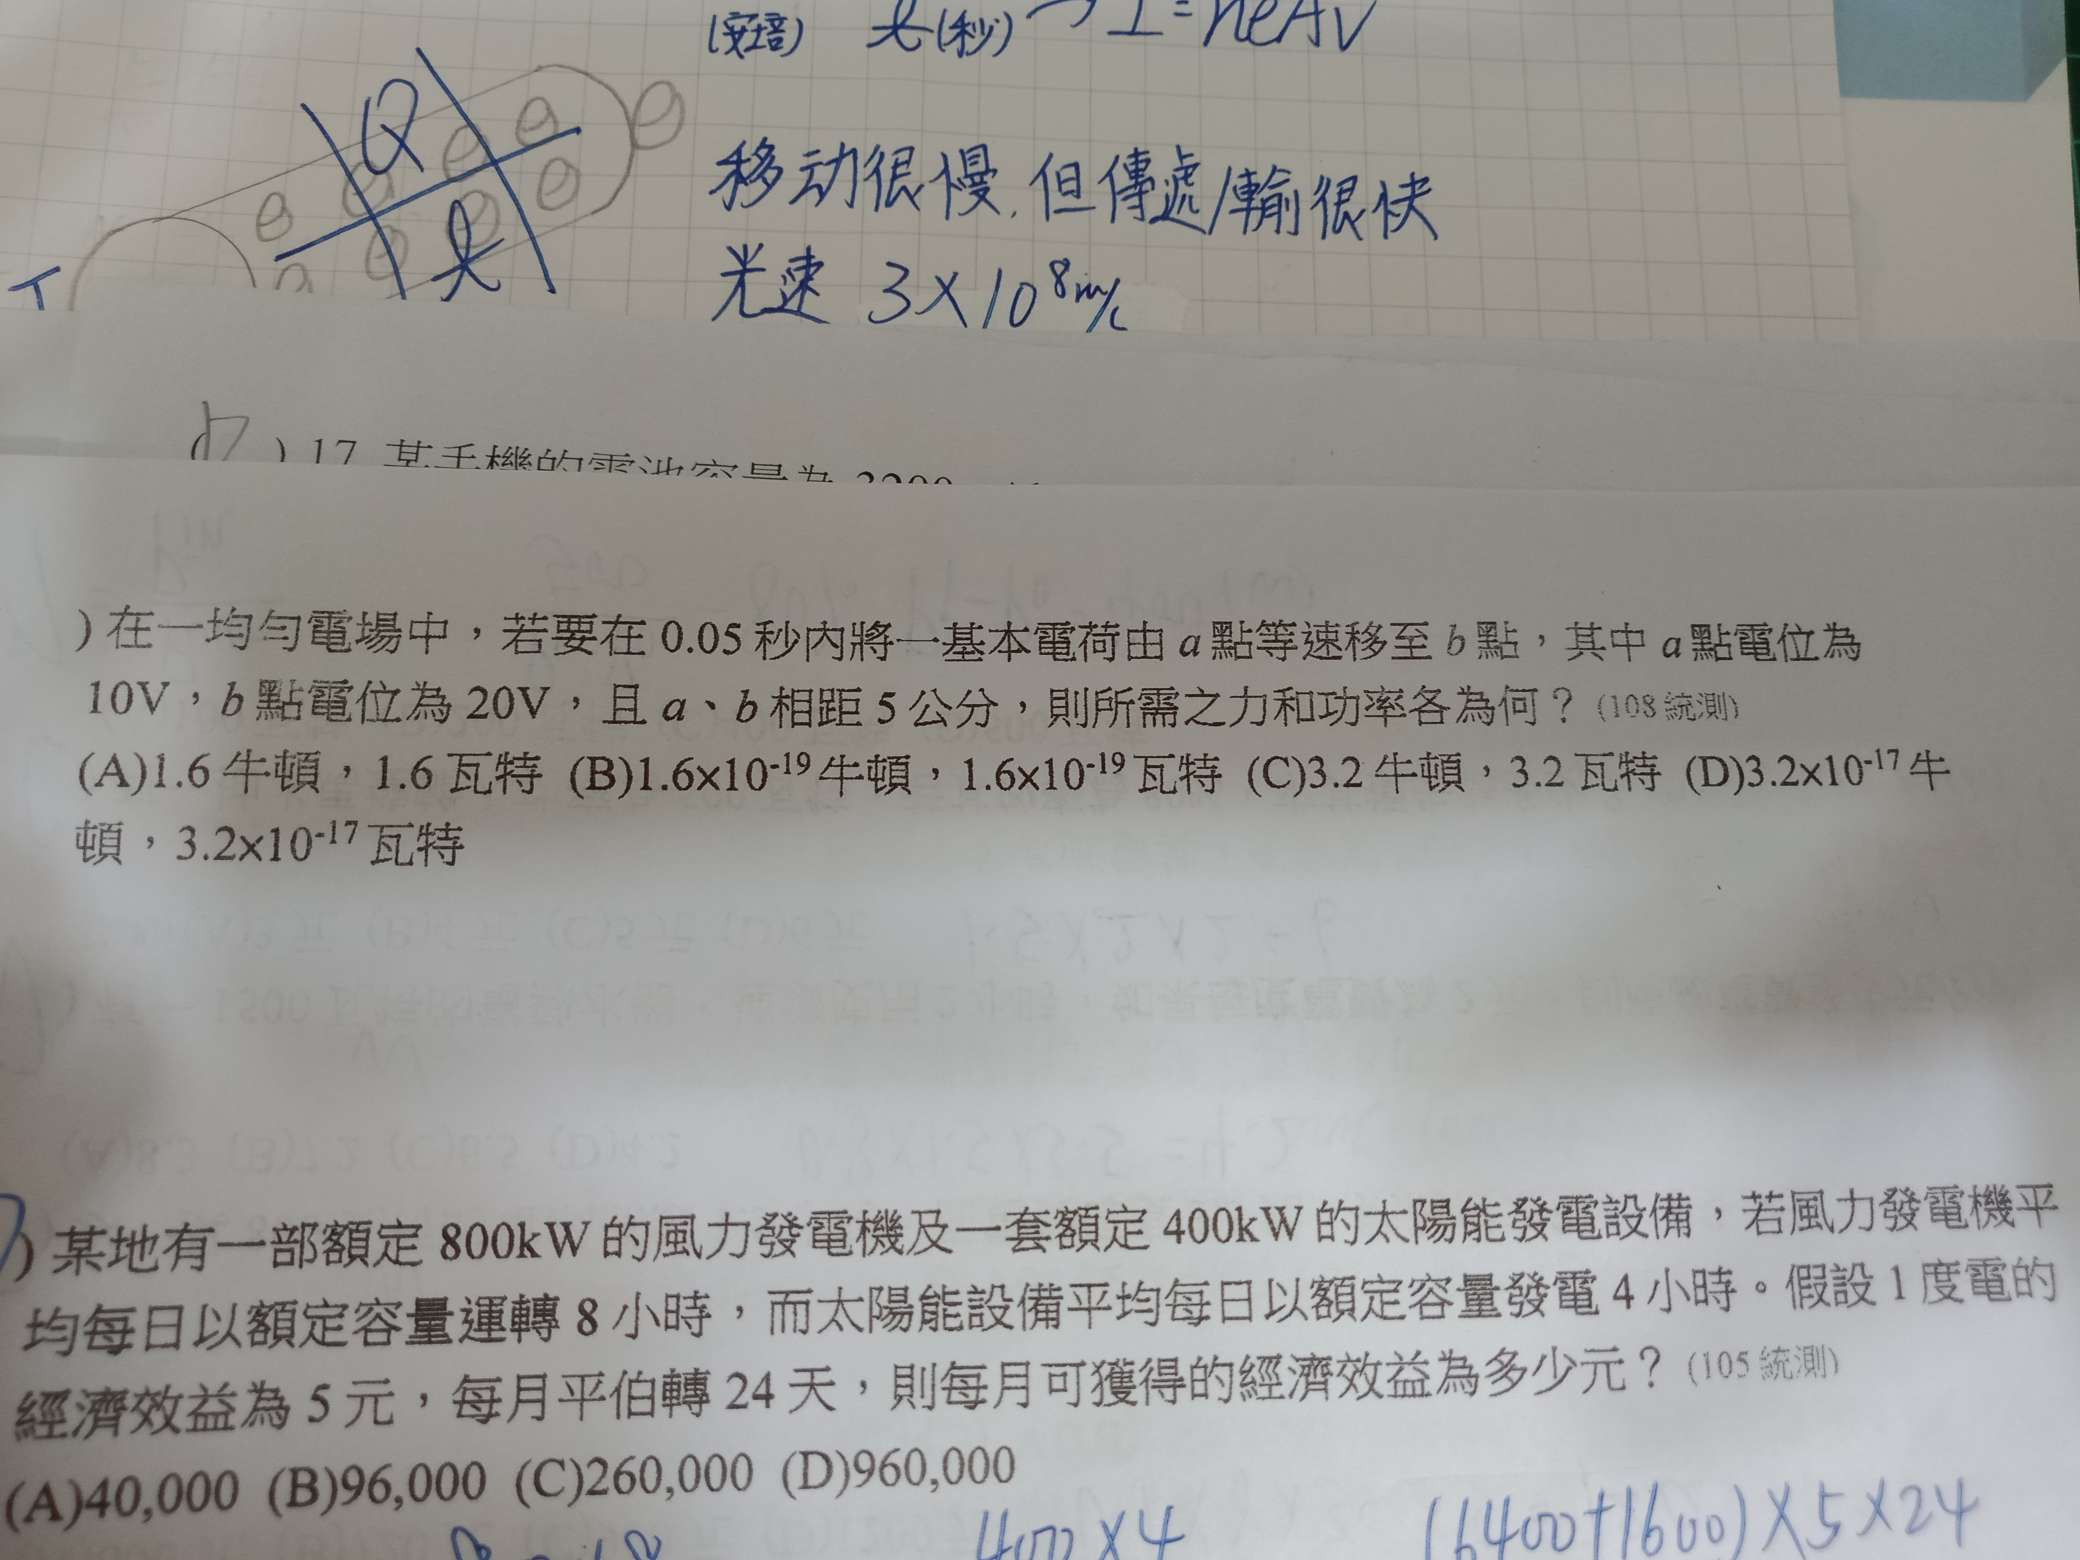 (安培) t(秒) → I=neAv
Q
t
移动很慢,但傳遞/輸很快
光速 3×10⁸m/s
) 17 某手機的電池容量為 3200
) 在一均勻電場中，若要在 0.05 秒內將一基本電荷由 a 點等速移至 b 點，其中 a 點電位為
10V，b 點電位為 20V，且 a、b 相距 5 公分，則所需之力和功率各為何？ (108 統測)
(A)1.6 牛頓，1.6 瓦特 (B)1.6×10⁻¹⁹ 牛頓，1.6×10⁻¹⁹ 瓦特 (C)3.2 牛頓，3.2 瓦特 (D)3.2×10⁻¹⁷ 牛
頓，3.2×10⁻¹⁷ 瓦特
) 某地有一部額定 800kW 的風力發電機及一套額定 400kW 的太陽能發電設備，若風力發電機平
均每日以額定容量運轉 8 小時，而太陽能設備平均每日以額定容量發電 4 小時。假設 1 度電的
經濟效益為 5 元，每月平伯轉 24 天，則每月可獲得的經濟效益為多少元？ (105 統測)
(A)40,000 (B)96,000 (C)260,000 (D)960,000
400×4 (6400+1600)×5×24